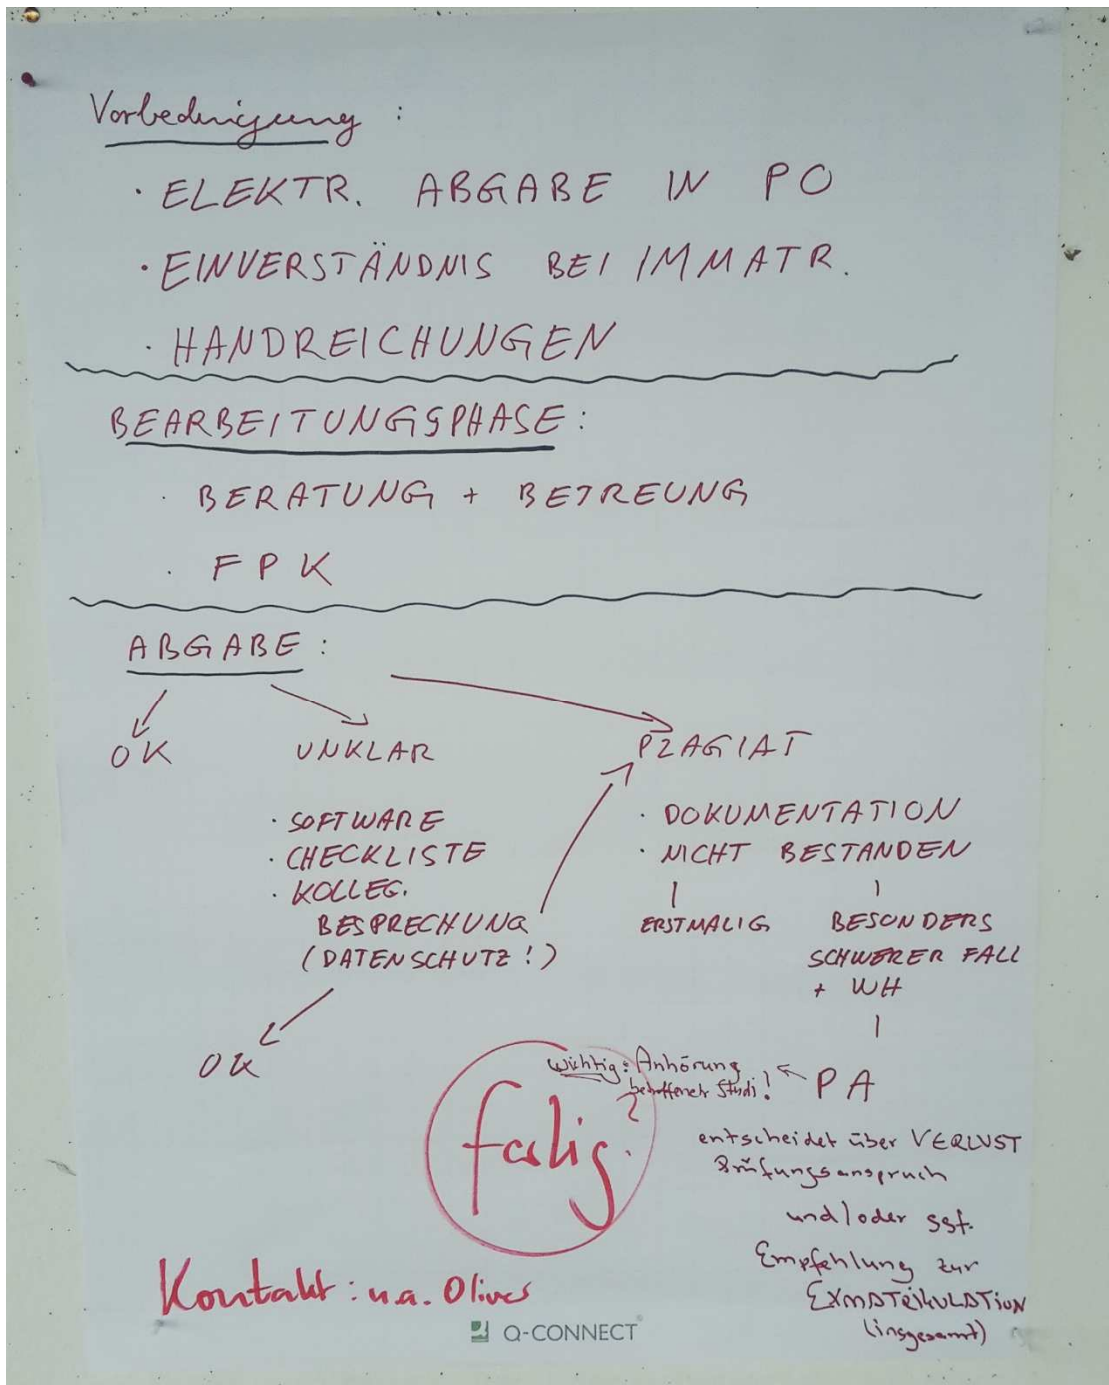 Vorbedingung :
· ELEKTR. ABGABE IN PO
· EINVERSTÄNDNIS BEI IMMATR.
· HANDREICHUNGEN
BEARBEITUNGSPHASE :
· BERATUNG + BETREUNG
· FPK
ABGABE :
OK UNKLAR PLAGIAT
· SOFTWARE
· CHECKLISTE
· KOLLEG.
BESPRECHUNG
(DATENSCHUTZ!)
OK
· DOKUMENTATION
· NICHT BESTANDEN
ERSTMALIG BESONDERS
SCHWERER FALL
+ WH
PA
wichtig: Anhörung
betroffener Studi!
entscheidet über VERLUST
Prüfungsanspruch
und/oder ggf.
Empfehlung zur
EXMATRIKULATION
(insgesamt)
Kontakt: u.a. Oliver
Q-CONNECT